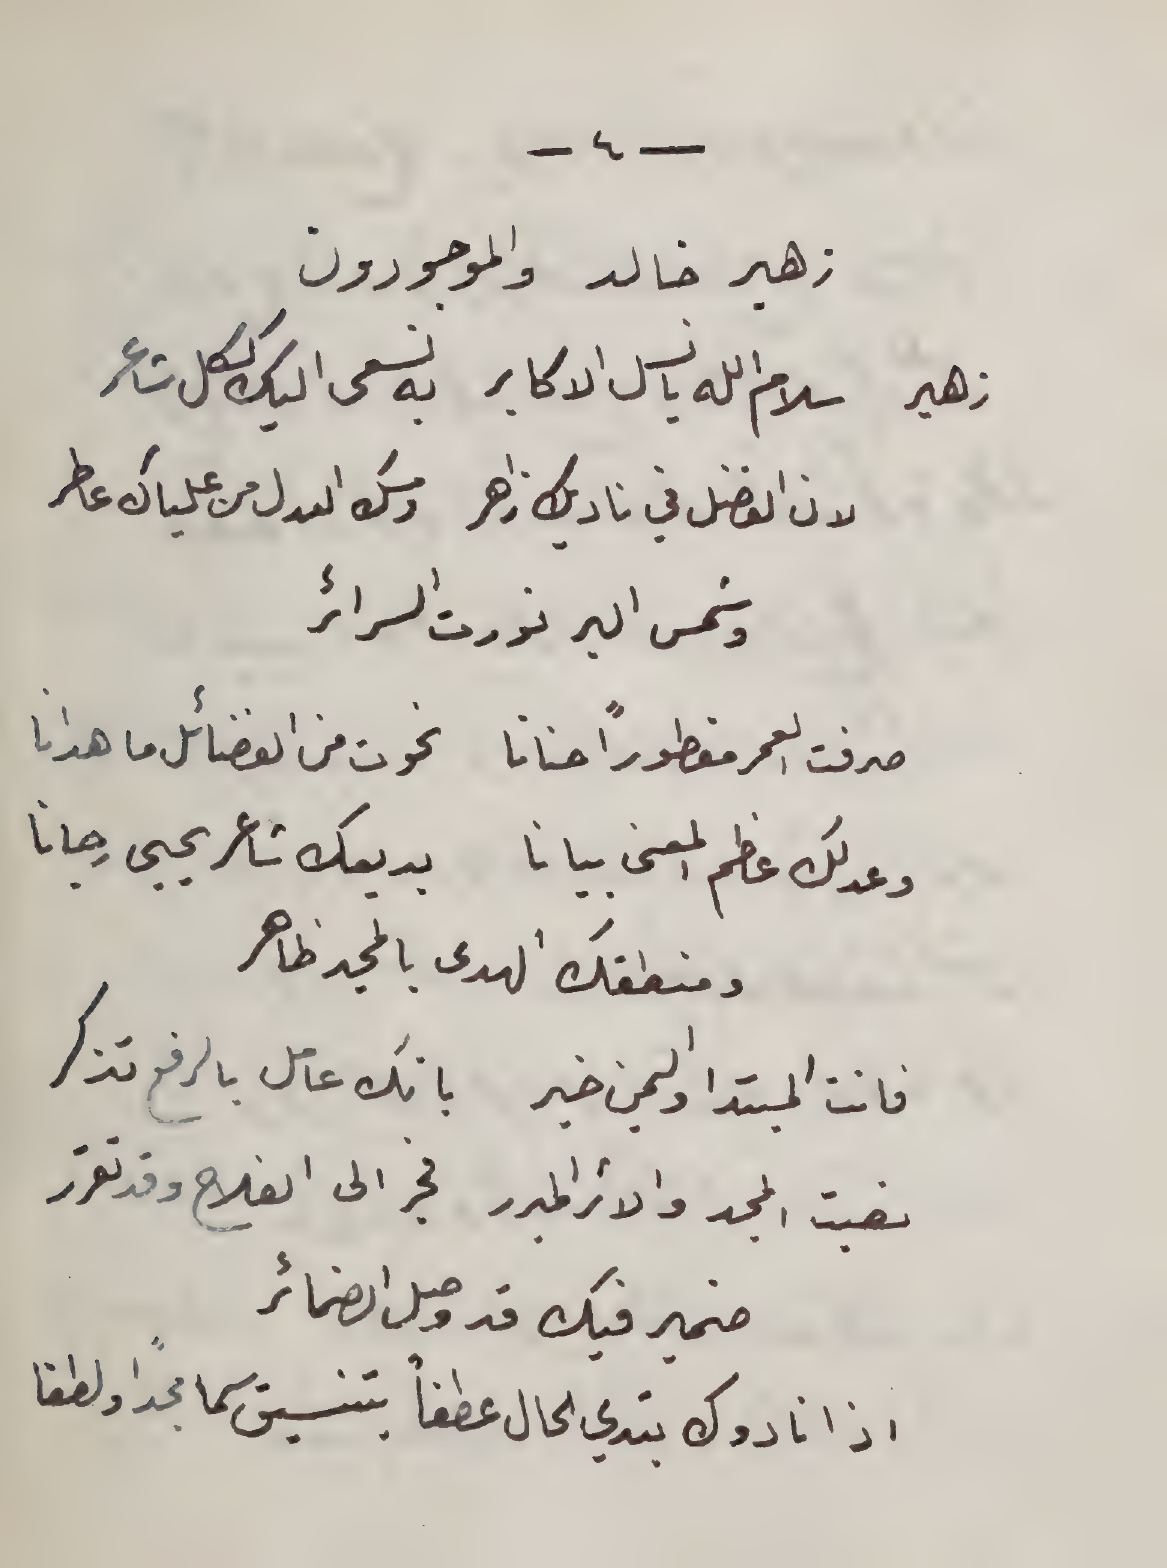 — ٤ —
زهير خالد والموجودون
زهير سلام الله يا نسل الاكابر به نسعى اليك لكل شاعر
لان الفضل في ناديك زاهر ومسك العدل من علياك عاطر
وشمس البر نورت السرائر
صرفت العمر مفطوراً حنانا نحوت من الفضائل ما هدانا
وعدلك عاظم المعنى بيانا بديعك شاعر يحيى رجانا
ومنطقك الهدى بالمجد ظاهر
فانت المبتدا واليمن خبر بانك عامل بالرفع تذكر
نصبت المجد والاثر المبرر فجر الى الفلاح وقد تقرر
ضمير فيك قد وصل الضمائر
اذا نادوك بتدي الحال عطفاً بتنسيق سما مجداً ولطفا